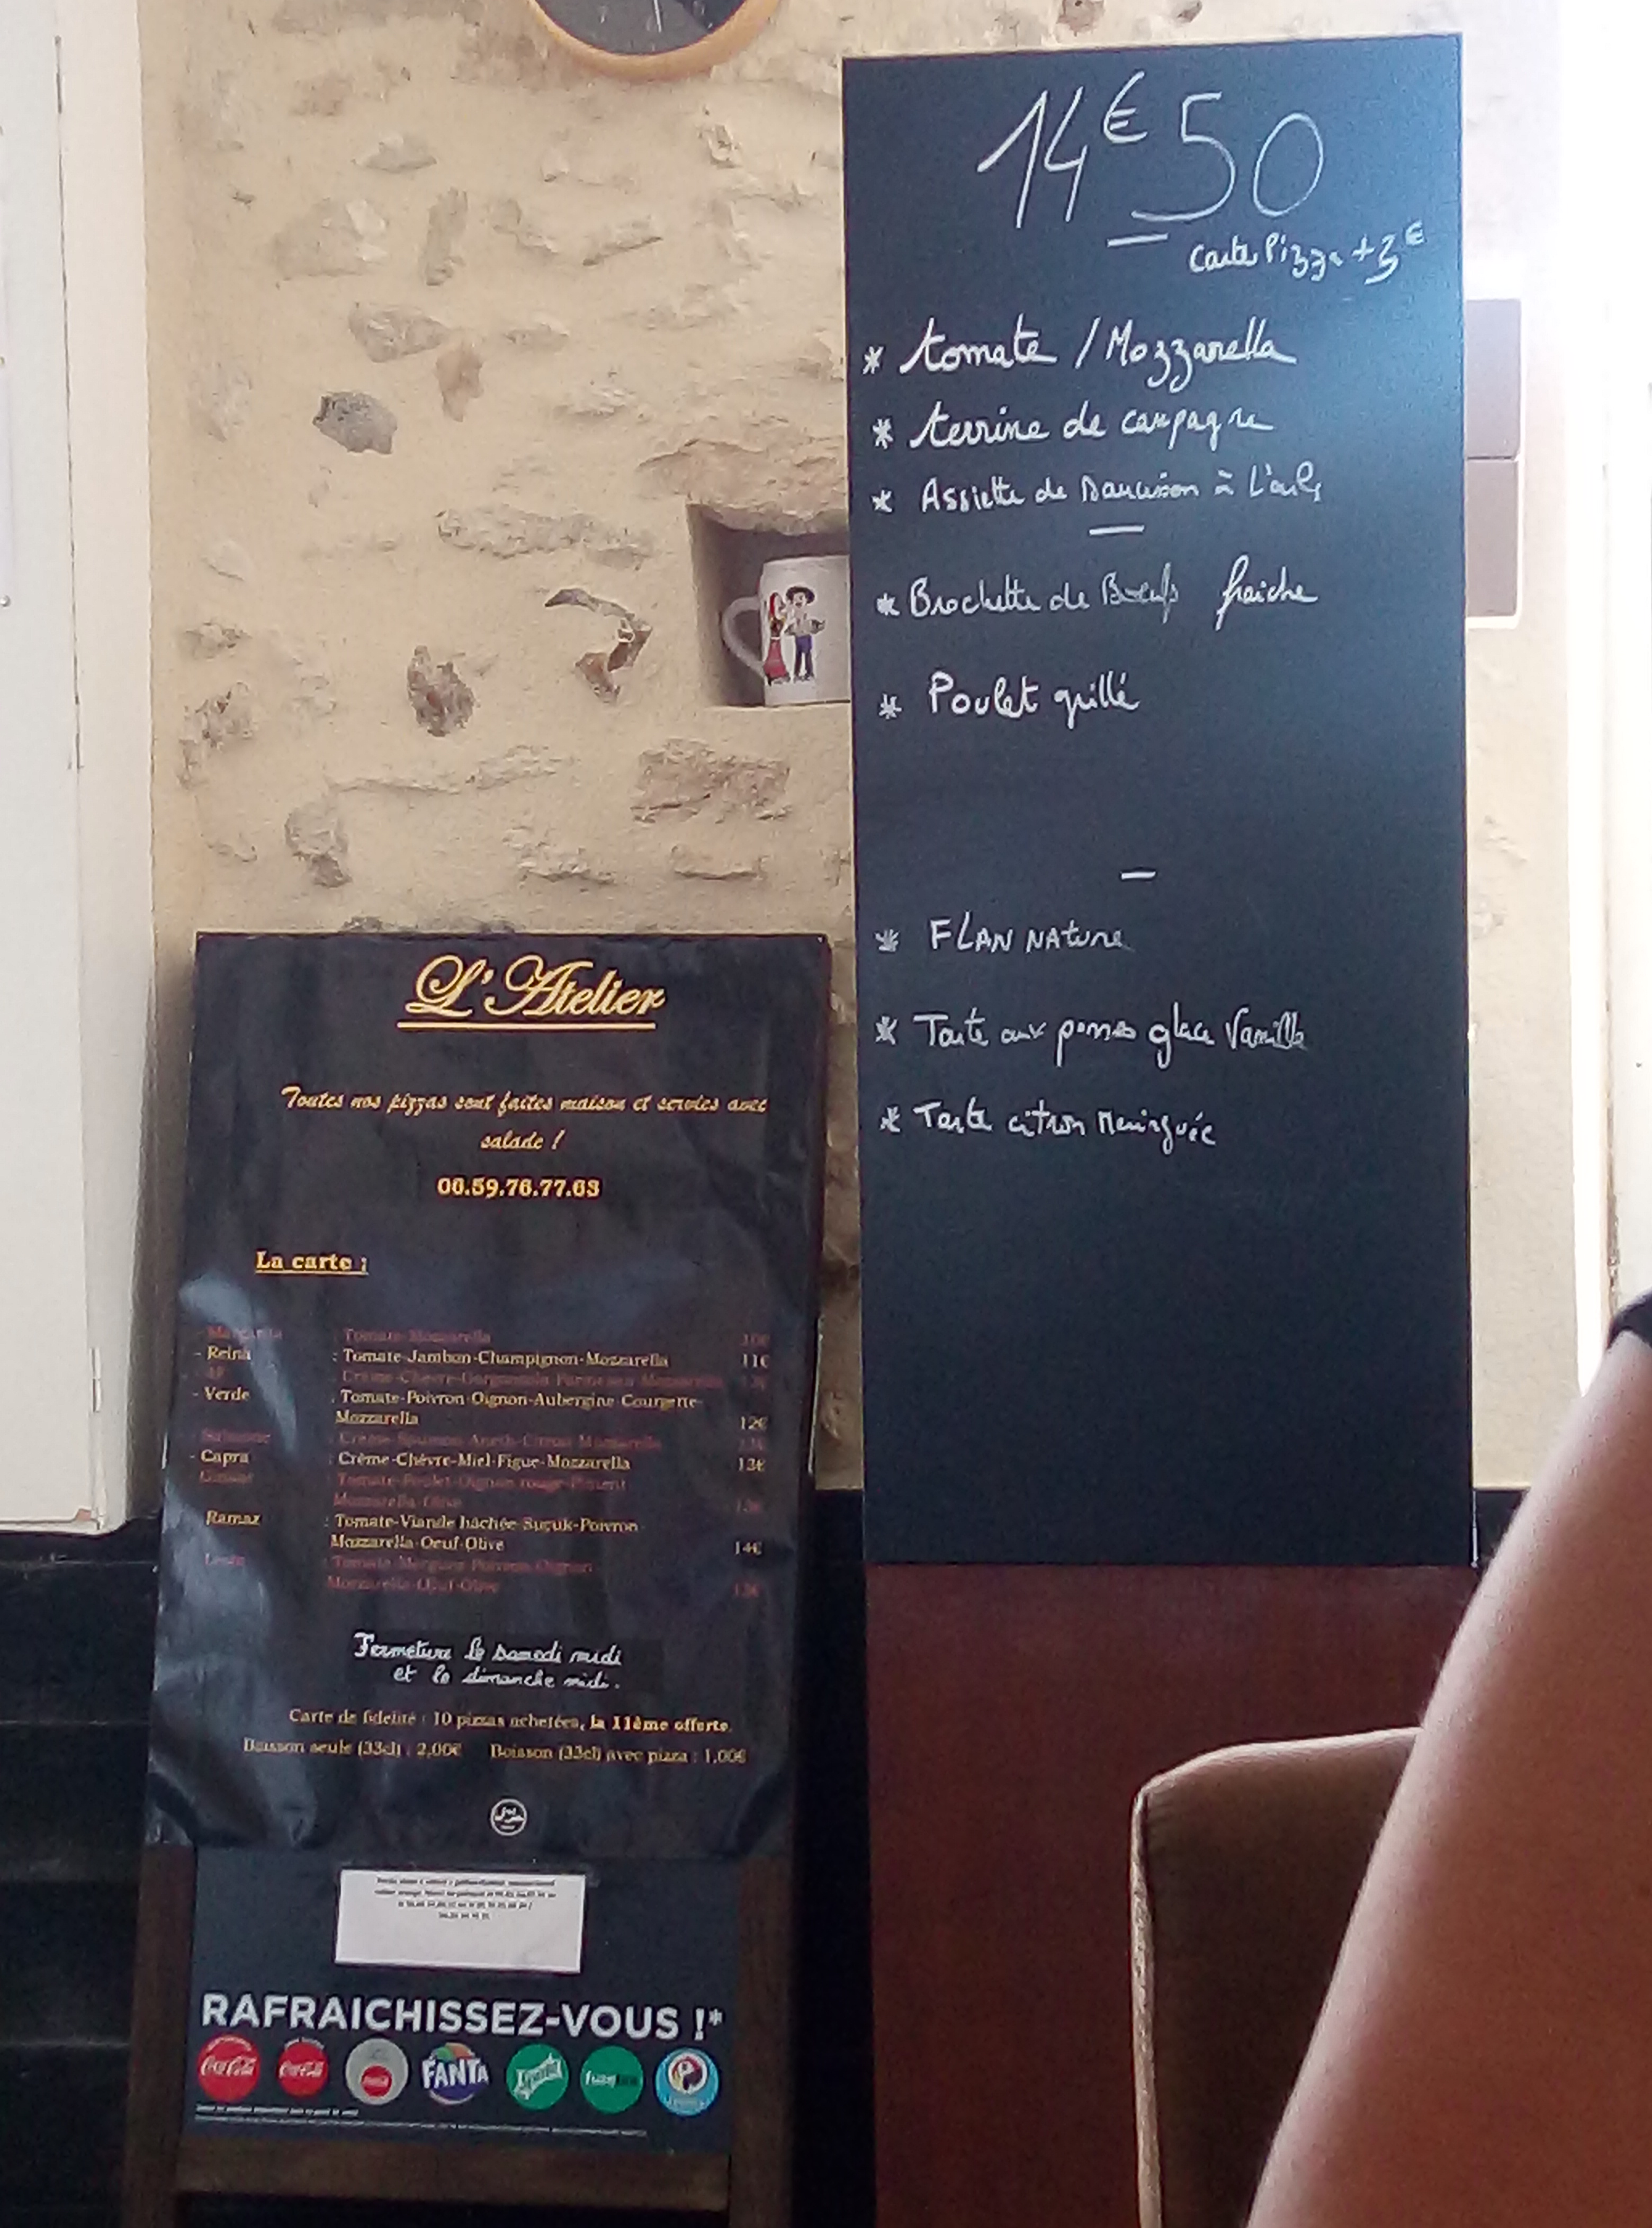 14€50
Carte Pizza +3€
* tomate / Mozzarella
* terrine de campagne
* Assiette de Saucisson à L'ail
* Brochette de Bœufs fraiche
* Poulet grillé
* FLAN NATure
* Tarte aux pommes glace Vanille
* Tarte citron Meringuée
L'Atelier
Toutes nos pizzas sont faites maison et servies avec
salade !
06.59.76.77.63
La carte :
- Margarita : Tomate-Mozzarella 10€
- Reina : Tomate-Jambon-Champignon-Mozzarella 11€
: Crème-Chèvre-Gorgonzola-Parmesan-Mozzarella
- Verde : Tomate-Poivron-Oignon-Aubergine-Courgette-
Mozzarella 12€
: Crème-Saumon-Aneth-Citron-Mozzarella
- Capra : Crème-Chèvre-Miel-Figue-Mozzarella 13€
: Tomate-Poulet-Oignon rouge-Piment
Mozzarella-Olive
Ramaz : Tomate-Viande hâchée-Suçuk-Poivron-
Mozzarella-Oeuf-Olive 14€
: Tomate-Merguez-Poivron-Oignon
Mozzarella-Œuf-Olive
Fermeture le samedi midi
et le dimanche midi.
Carte de fidelité : 10 pizzas achetées, la 11ème offerte.
Boisson seule (33cl) : 2,00€ Boisson (33cl) avec pizza : 1,00€
RAFRAICHISSEZ-VOUS !*
Coca-Cola Coca-Cola FANTA Sprite fuzetea